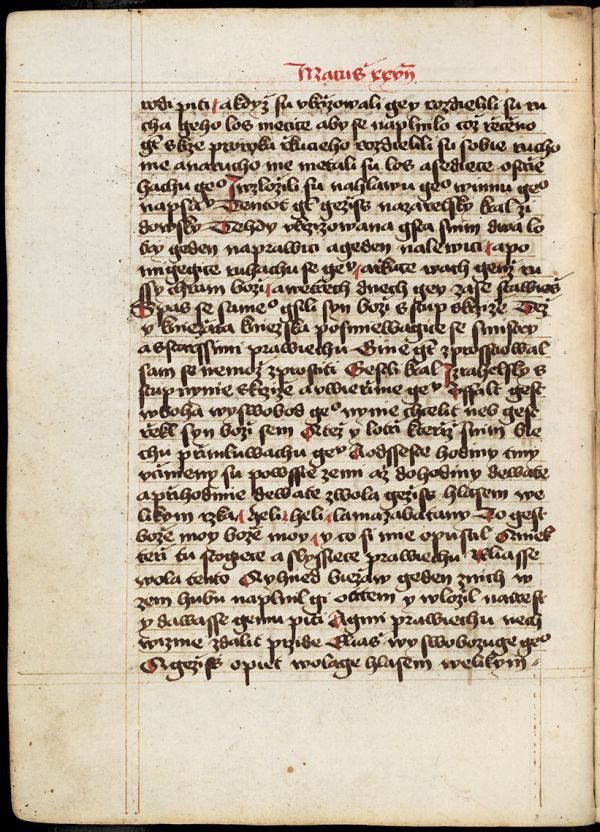 Matus xxvii
wdi piti / a kdyz su vkrizowali gey rozdielili su ru
cha geho los mecice aby se naplnilo coz receno
gt skrze proroka rkucieho rozdielili su sobie rucho
me a na rucho me metali su los a sediece ostrie
hachu geo I wzlozili su na hlawu geo winnu geo
napsau Tentot gt gezis nazaretsky kral zi
dowsky Tehdy vkrizowana gsta s nim dwa lo
try geden na prawici a geden na lewici / a po
migegice ruhachu se geu / a rkuce wach genz ru
ssy chram bozi / a we trech dnech gey zase stawies
Spas se same° gsli syn bozi sstup s krize Tez
y kniezata kniezska posmiewagice se s mistry
a s starssimi prawiechu Gine gt zprostowal
sam se nemoz zprostiti Gestli kral Izrahelsky s
stup nynie s krize a vwierime geu Uffalt gest
w boha wyswobod geo nynie chcelit nes gest
rekl syn bozi sem A tez y lotri kteriz s nim bie
chu primluwachu geu A od sseste hodiny tmy
vcineny su po wssie zemi az do hodiny dewate
a pri hodinie dewate zwola gezis hlasem we
likym rzka / heli / heli / lamazabatany To gest
boze moy boze moy / y co si mie opustil A niek
teri tu stogiece a slyssiece prawiechu Eliasse
wola tento A yhned biezaw geden z nich w
zem hubu naplnil gi octem y wlozil na trest
y dawasse gemu piti A gini prawiechu nech
wizme zdalit pride Elias wyswobozuge geo
A gezis opiet wolage hlasem welikym